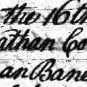 the 16th
athan Co
an Ban